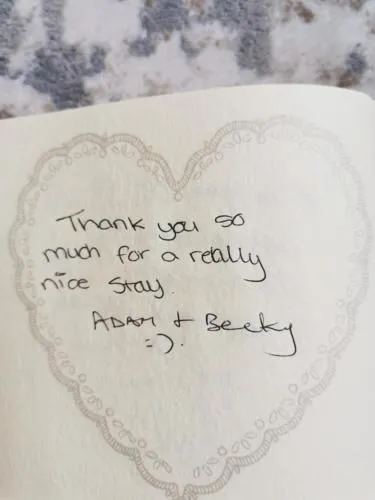 Thank you so
much for a really
nice stay.
ADAM + Becky
=).